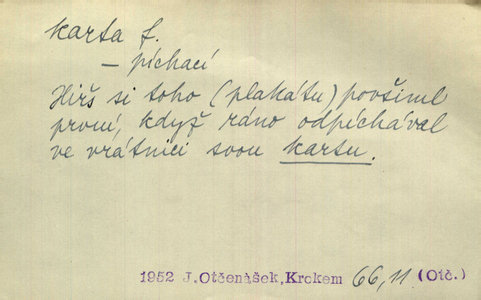 karta f.
– píchací
Hirš si toho (plakátu) povšiml
první, když ráno odpíchával
ve vrátnici svou kartu.
1952 J.Otčenášek, Krokem 66, 11 (Otč.)